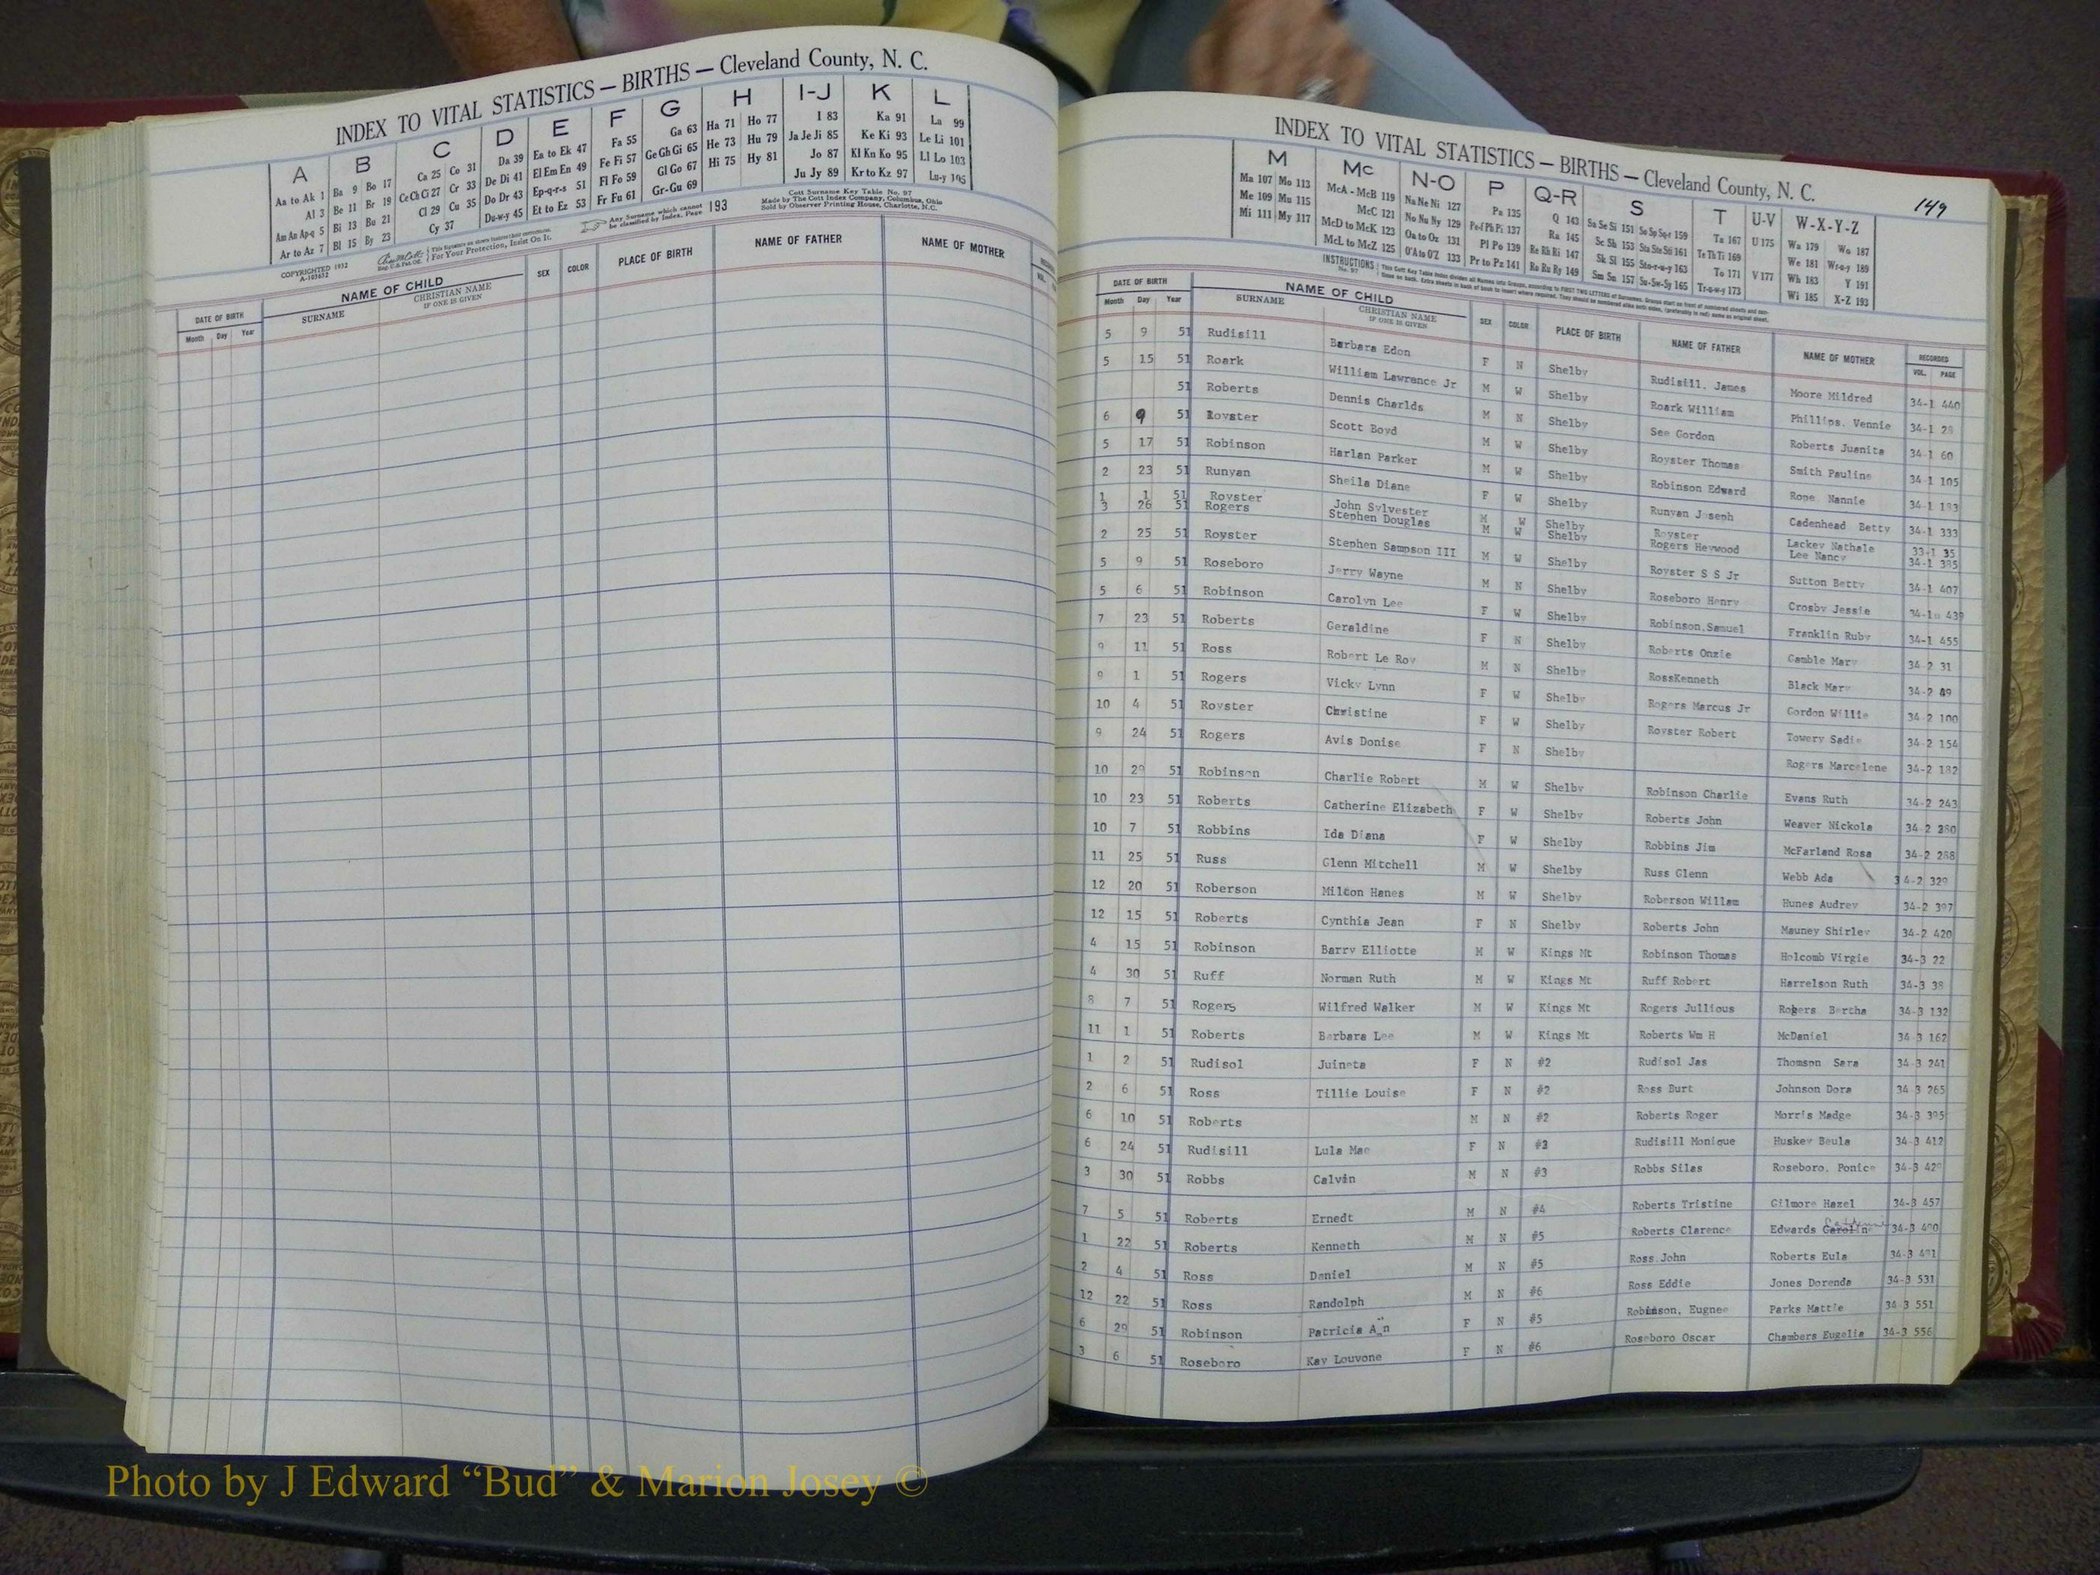 INDEX TO VITAL STATISTICS — BIRTHS — Cleveland County, N. C.
A B C D E F G H I-J K L
Aa to Ak 1 Ba 9 Bo 17 Ca 25 Co 31 Da 39 Ea to Ek 47 Fa 55 Ga 63 Ha 71 Ho 77 I 83 Ka 91 La 99
Al 3 Be 11 Br 19 Ce Ch Ci 27 Cr 33 De Di 41 El Em En 49 Fe Fi 57 Ge Gh Gi 65 He 73 Hu 79 Ja Je Ji 85 Ke Ki 93 Le Li 101
Am An Ap-q 5 Bi 13 Bu 21 Cl 29 Cu 35 Do Dr 43 Ep-q-r-s 51 Fl Fo 59 Gl Go 67 Hi 75 Hy 81 Jo 87 Kl Kn Ko 95 Ll Lo 103
Ar to Az 7 Bl 15 By 23 Cy 37 Du-w-y 45 Et to Ez 53 Fr Fu 61 Gr-Gu 69 Ju Jy 89 Kr to Kz 97 Lu-y 105
COPYRIGHTED 1932
A-103652
For Your Protection, Insist On It.
Any Surname which cannot be classified by Index, Page 193
Cott Surname Key Table No. 97
Made by The Cott Index Company, Columbus, Ohio
Sold by Observer Printing House, Charlotte, N.C.
DATE OF BIRTH NAME OF CHILD SEX COLOR PLACE OF BIRTH NAME OF FATHER NAME OF MOTHER
Month Day Year SURNAME CHRISTIAN NAME
IF ONE IS GIVEN
INDEX TO VITAL STATISTICS — BIRTHS — Cleveland County, N. C.
149
M Mc N-O P Q-R S T U-V W-X-Y-Z
Ma 107 Mo 113 McA - McB 119 Na Ne Ni 127 Pa 135 Q 143 Sa Se Si 151 So Sp Sq-r 159 Ta 167 U 175 Wa 179 Wo 187
Me 109 Mu 115 McC 121 No Nu Ny 129 Pe-f Ph Pi 137 Ra 145 Sc Sh 153 Sta Ste Sti 161 Te Th Ti 169 We 181 Wr-u-y 189
Mi 111 My 117 McD to McK 123 Oa to Oz 131 Pl Po 139 Re Rh Ri 147 Sk Sl 155 Sto-r-u-y 163 To 171 V 177 Wh 183 Y 191
McL to McZ 125 O'A to O'Z 133 Pr to Pz 141 Ro Ru Ry 149 Sm Sn 157 Su-Sw-Sy 165 Tr-u-w-y 173 Wi 185 X-Z 193
INSTRUCTIONS
No. 97
DATE OF BIRTH NAME OF CHILD SEX COLOR PLACE OF BIRTH NAME OF FATHER NAME OF MOTHER RECORDED
Month Day Year SURNAME CHRISTIAN NAME VOL. PAGE
IF ONE IS GIVEN
5 9 51 Rudisill Barbara Edon F N Shelby Rudisill, James Moore Mildred 34-1 440
5 15 51 Roark William Lawrence Jr M W Shelby Roark William Phillips. Vennie 34-1 28
51 Roberts Dennis Charlds M N Shelby See Gordon Roberts Juanita 34-1 60
6 9 51 Royster Scott Boyd M W Shelby Royster Thomas Smith Pauline 34-1 105
5 17 51 Robinson Harlan Parker M W Shelby Robinson Edward Rope. Nannie 34-1 193
2 23 51 Runyan Sheila Diane F W Shelby Runyan Joseph Cadenhead Betty 34-1 333
1 1 51 Royster John Sylvester M W Shelby Royster Lackey Nathale 33-1 35
3 26 51 Rogers Stephen Douglas M W Shelby Rogers Heywood Lee Nancy 34-1 385
2 25 51 Royster Stephen Sampson III M W Shelby Royster S S Jr Sutton Betty 34-1 407
5 9 51 Roseboro Jerry Wayne M N Shelby Roseboro Henry Crosby Jessie 439
5 6 51 Robinson Carolyn Lee F W Shelby Robinson.Samuel Franklin Ruby 34-1 455
7 23 51 Roberts Geraldine F N Shelby Roberts Onzie Gamble Mary 34-2 31
9 11 51 Ross Robert Le Roy M N Shelby RossKenneth Black Mary 34-2
9 1 51 Rogers Vicky Lynn F W Shelby Rogers Marcus Jr Gordon Willie 34-2 100
10 4 51 Royster Christine F W Shelby Royster Robert Towery Sadie 34-2 154
9 24 51 Rogers Avis Donise F N Shelby Rogers Marcelene 34-2 182
10 29 51 Robinson Charlie Robert M W Shelby Robinson Charlie Evans Ruth 34-2 243
10 23 51 Roberts Catherine Elizabeth F W Shelby Roberts John Weaver Nickola 34-2 280
10 7 51 Robbins Ida Diana F W Shelby Robbins Jim McFarland Rosa 34-2 288
11 25 51 Russ Glenn Mitchell M W Shelby Russ Glenn Webb Ada 34-2 329
12 20 51 Roberson Milton Hanes M W Shelby Roberson Willam Hunes Audrey 34-2 397
12 15 51 Roberts Cynthia Jean F N Shelby Roberts John Mauney Shirley 34-2 420
4 15 51 Robinson Barry Elliotte M W Kings Mt Robinson Thomas Holcomb Virgie 34-3 22
4 30 51 Ruff Norman Ruth M W Kings Mt Ruff Robert Harrelson Ruth 34-3 38
8 7 51 Rogers Wilfred Walker M W Kings Mt Rogers Jullious Rogers Bertha 34-3 132
11 1 51 Roberts Barbara Lee M W Kings Mt Roberts Wm H McDaniel 34-3 162
1 2 51 Rudisol Juineta F N #2 Rudisol Jas Thomson Sara 34-3 241
2 6 51 Ross Tillie Louise F N #2 Ross Burt Johnson Dora 34-3 265
6 10 51 Roberts M N #2 Roberts Roger Morris Madge 34-3 395
6 24 51 Rudisill Lula Mae F N #3 Rudisill Monique Huskey Beula 34-3 412
3 30 51 Robbs Calvin M N #3 Robbs Silas Roseboro. Ponice 34-3 429
7 5 51 Roberts Ernedt M N #4 Roberts Tristine Gilmore Hazel 34-3 457
1 22 51 Roberts Kenneth M N #5 Roberts Clarence Edwards Carolin 34-3 490
2 4 51 Ross Daniel M N #5 Ross John Roberts Eula 34-3 491
12 22 51 Ross Randolph M N #6 Ross Eddie Jones Dorenda 34-3 531
6 29 51 Robinson Patricia Ann F N #5 Robinson, Eugnee Parks Mattie 34-3 551
3 6 51 Roseboro Kay Louvone F N #6 Roseboro Oscar Chambers Eugelia 34-3 556
Photo by J Edward “Bud” & Marion Josey ©